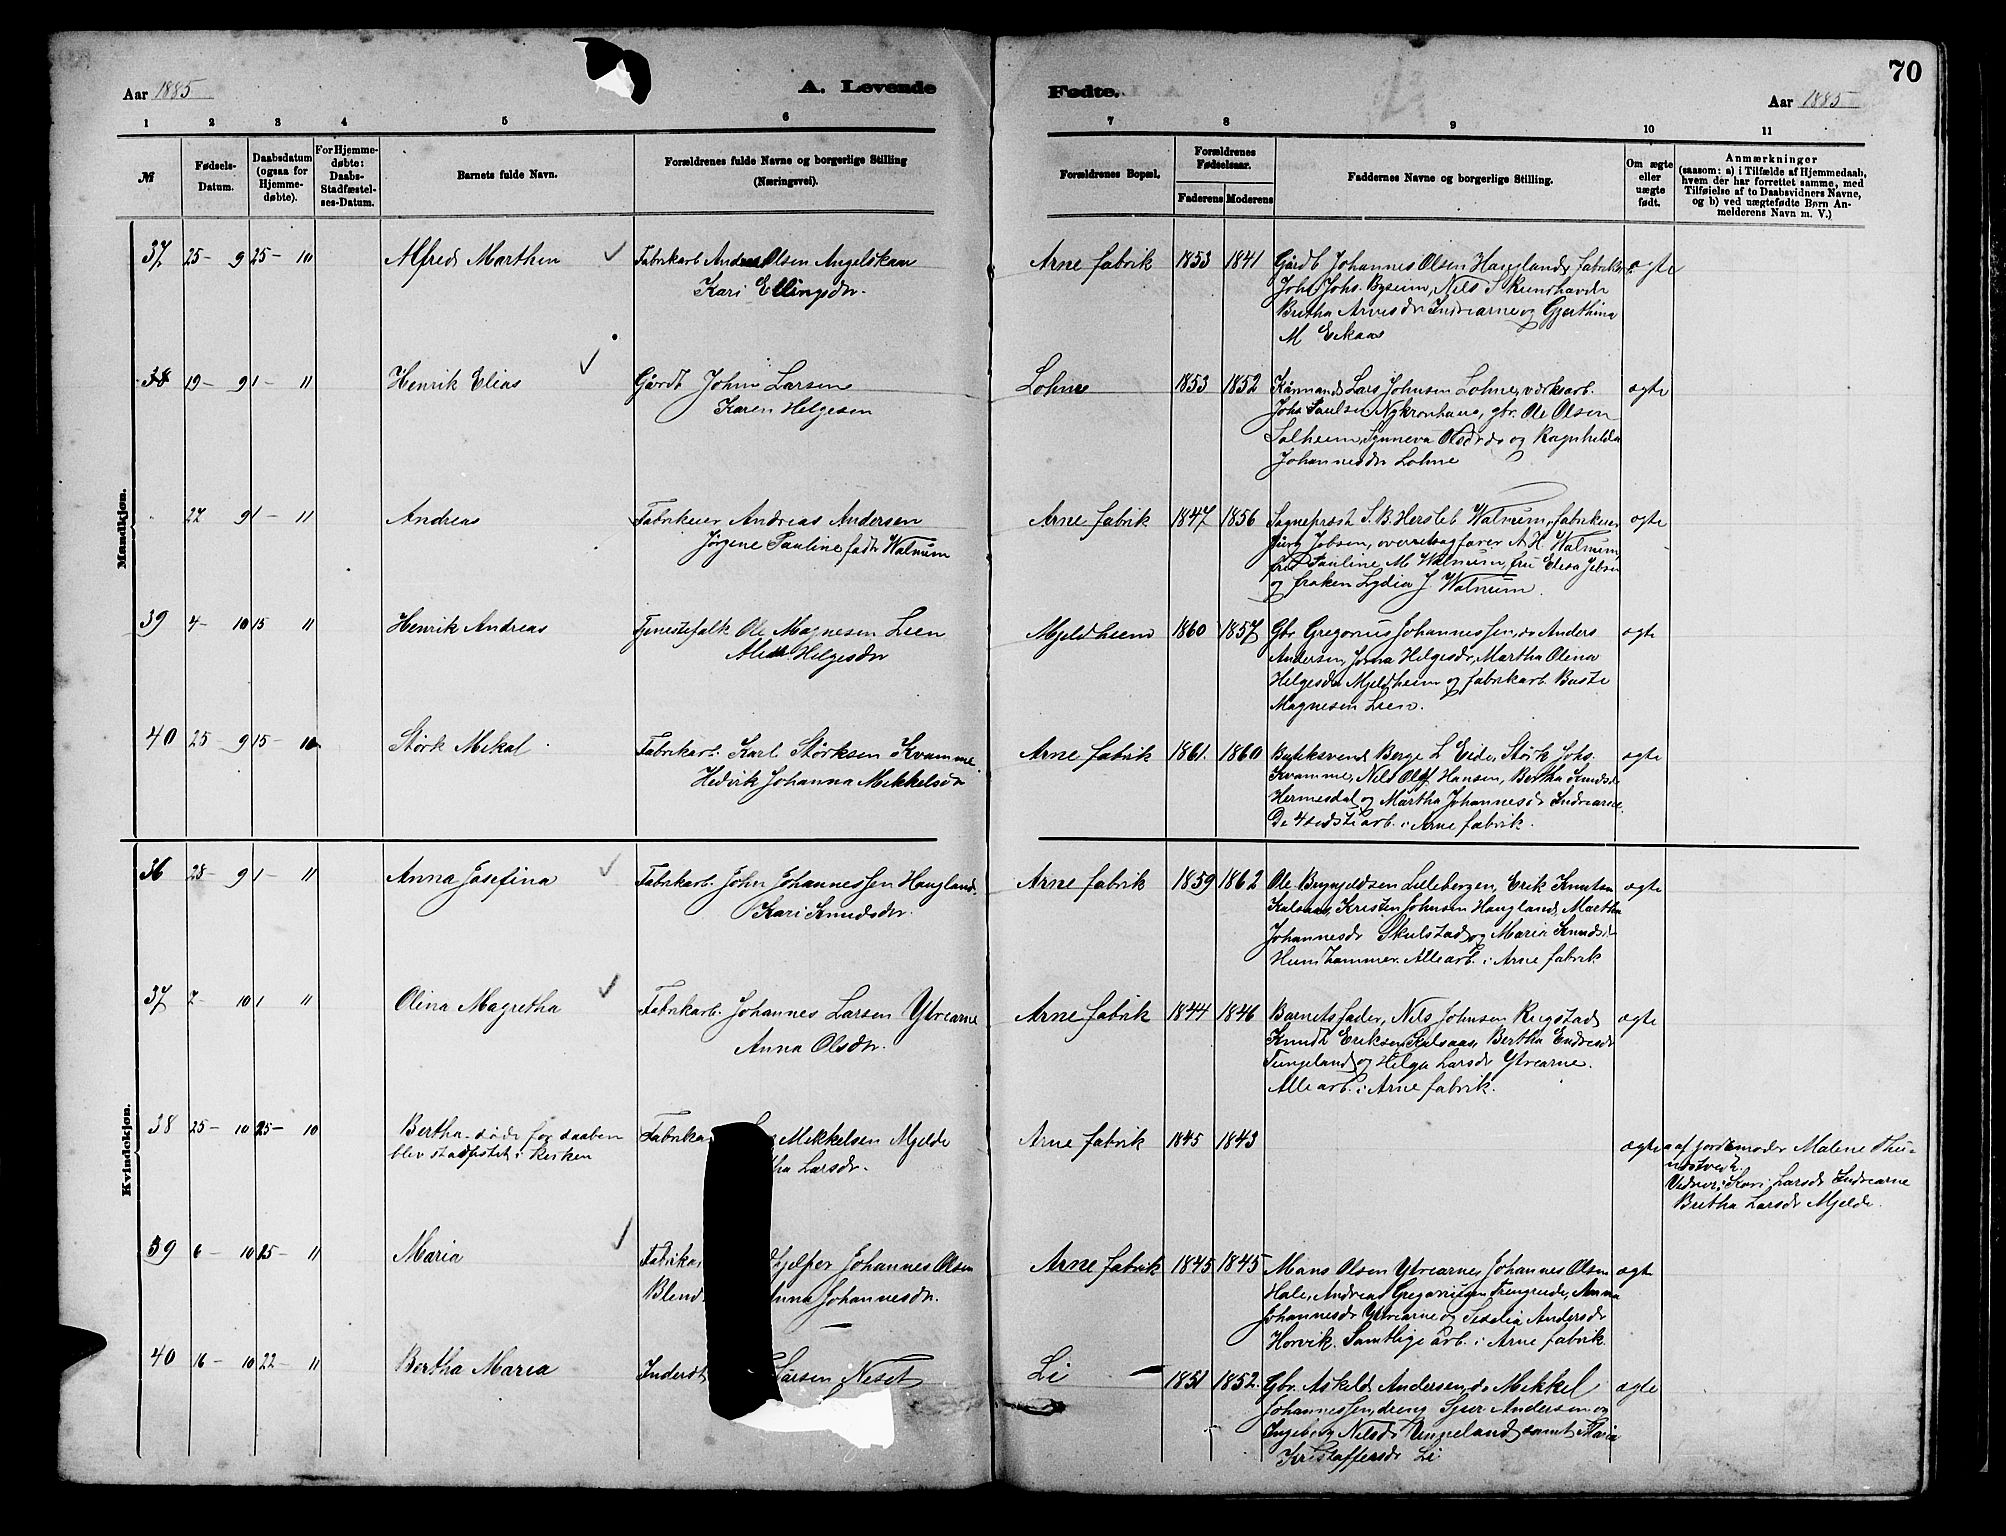 70
Aar 1885
A. Levende
Fødte.
Aar 1885
1 2 3 4 5 6 7 8 9 10 11
№
Fødsels-
Datum.
Daabsdatum
(ogsaa for
Hjemme-
døbte).
For Hjemme-
døbte:
Daabs-
Stadfæstel-
ses-Datum.
Barnets fulde Navn.
Forældrenes fulde Navne og borgerlige Stilling
(Næringsvei).
Forældrenes Bopæl.
Forældrenes
Fødselsaar.
Faderens Moderens
Faddernes Navne og borgerlige Stilling.
Om ægte
eller
uægte
født.
Anmærkninger
(saasom: a) i Tilfælde af Hjemmedaab,
hvem der har forrettet samme, med
Tilføielse af to Daabsvidners Navne,
og b) ved uægtefødte Børn An-
melderens Navn m. V.)
Mandkjøn.
37 25- 9 25- 10 Alfred Marthin Fabrikarb Olsen Angelskaar
Kari Ellingsdr.
Arne fabrik 1853 1841 Gårdb Johannes Olsen Haugland, fabrikarb ægte
Johs. Byseim, Nils
Bertha Arnesdr Indrearne og Gjerthina
M
38 19- 9 1- 11 Henrik Elias Gårdb John Larsen
Karen Helgesen
Lohne 1853 1852 Kårmand Lars Johnsen Lohne, værksarb. ægte
Johs Paulsen Nykronhaug, gbr. Ole Olsen
Solheim, Synneva Olsdr do og Ragnhilda
Johannesdr Lohne
27 9 1- 11 Andreas Fabrikeier Andreas Andersen
Jørgene Pauline født Walnum
Arne fabrik 1847 1856 Sogneprest S. B. Hersleb Walnum, fabrikeier ægte
Jebsen, overretsagfører A H. Walnum,
fru Pauline M Walnum, fru Elisa Jebsen
og frøken Lydia J. Walnum.
39 4- 10 15 11 Henrik Andreas Tjenestefolk Ole Magnesen Lien
Helgesdr
Mjeldheim 1860 1857 Gbr Gregorius Johannessen, do Anders ægte
Andersen, Helgesdr, Martha Olina
Helgesdr Mjeldheim og fabrikarb.
Magnesen Lien.
40 25 9 15- Størk Mikal Fabrikarb. Karl Størksen Kvamme
Hedvik Johanna Mikkelsdr
Arne fabrik 1861. 1860 Berge L Eide, Størk Johs. ægte
Kvamme, Nils Olaf Hansen, Bertha Knudsdr
Hermesdal og Martha Johannesdr Indrearne
De 4 sidste arb. i Arne fabrik.
Kvindekjøn.
36 28- 9 1- 11 Anna Josefina Fabrikarb. John Johannessen Haugland
Kari Knudsdr.
Arne fabrik 1859 1862 Ole Lillebergen, Erik Knutsen ægte
Kalsaas, Kristen Johnsen Haugland, Martha
Johannesdr Skulstad og Maria Knudsdr
Alle arb. i Arne fabrik
37 7- 10 1 11 Olina Magretha Fabrikarb. Johannes Larsen Ytrearne
Anna Olsdr.
Arne fabrik 1844 1846 Barnets fader, Nils Johnsen Rugstad ægte
Knudt Eriksen Kalsaas, Bertha Endresdr
Tungeland og Helga Larsdr Ytrearne.
Alle arb. i Arne fabrik.
38 25- 10 25- 10 Bertha. døde før daaben
blev stadfæstet i kirken
Mikkelsen Mjelde
Larsdr.
Arne fabrik 1845 1843 ægte af jordemoder Malene
Vidner: Kari Larsdr Indrearne
Bertha Larsdr Mjelde.
39 6- 10 25- 11 Maria hjælper Johannes Olsen
Johannesdr.
Arne fabrik 1845 1845 Mons Olsen Ytrearne, Johannes Olsen ægte
Hole, Andreas Gregoriusen Trengreide, Anna
Johannesdr Ytrearne og Siselia Andersdr
Horvik. Samtlige arb. i Arne fabrik.
40 16- 10 22- 11 Bertha Maria Larsen Neset
Li 1851 1852. Gbr. Askild Andersen, do Mikkel ægte
Johannessen, dreng Andersen og
Ingeborg Nilsdr samt Maria
Kristoffersdr Li